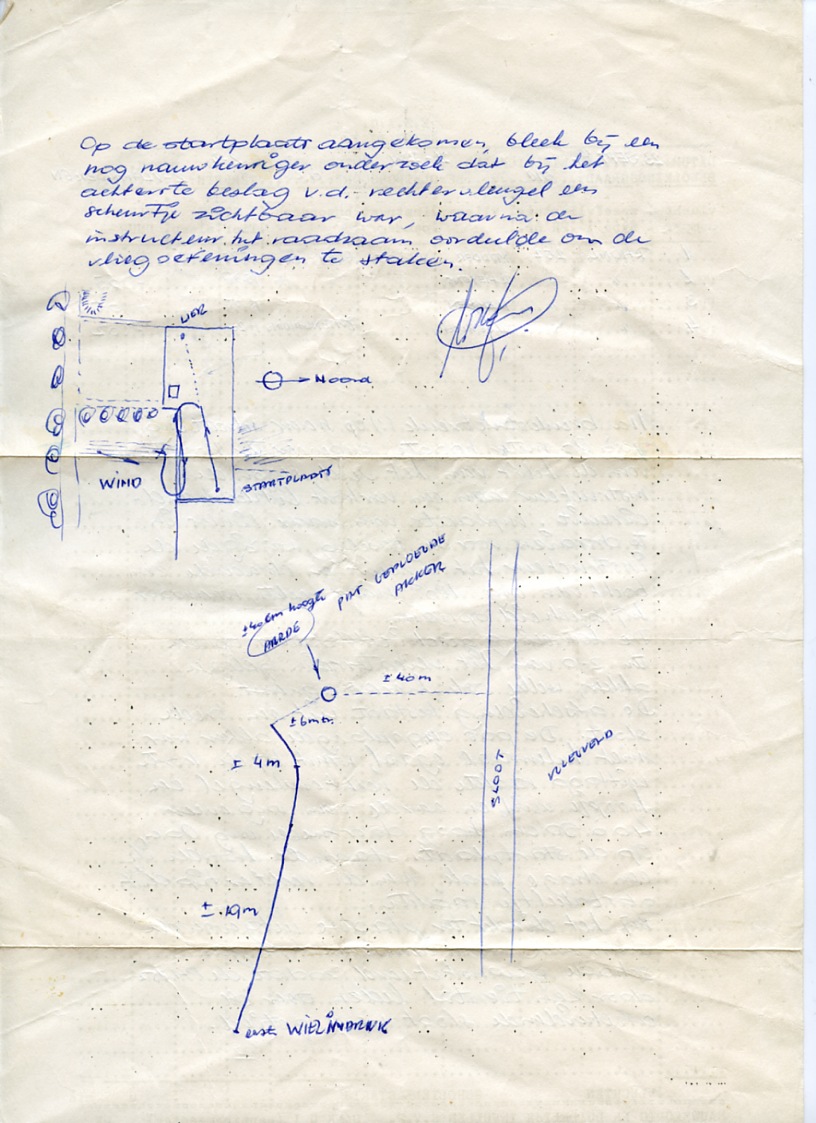 Op de startplaats aangekomen, bleek bij een
nog nauwkeuriger onderzoek dat bij het
achterste beslag v.d. rechtervleugel een
scheurtje zichtbaar was, waarna de
instructeur het raadzaam oordeelde om de
vliegoefeningen te staken.
LIER
Noord
WIND
STARTPLAATS
± 40 cm hoogte
AARDE
GEPLOEGDE
AKKER
± 40m
± 6mtr.
± 4m
SLOOT
VLIEGVELD
± 19m
eerste WIELINDRUK